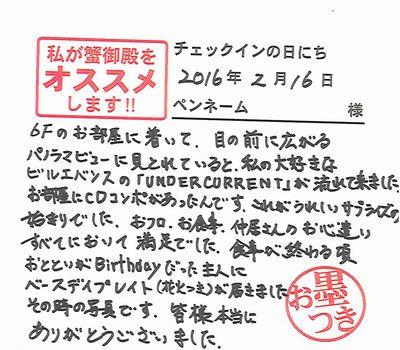 私が蟹御殿を
オススメ
します!!
チェックインの日にち
2016年 2月16日
ペンネーム 様
6Fのお部屋に着いて、目の前に広がる
パノラマビューに見とれていると、私の大好きな
ビルエバンスの「UNDERCURRENT」が流れて来ました
お部屋にCDコンポがあったんです。これがうれしいサプライズの
始まりでした。おフロ、お食事、仲居さんのお心遣い
すべてにおいて満足でした。食事が終わる頃
おとといがBirthdayだった主人に
ベースデイプレイト(花火つき)が届きました
その時の写真です。皆様本当に
ありがとうございました。
お墨つき